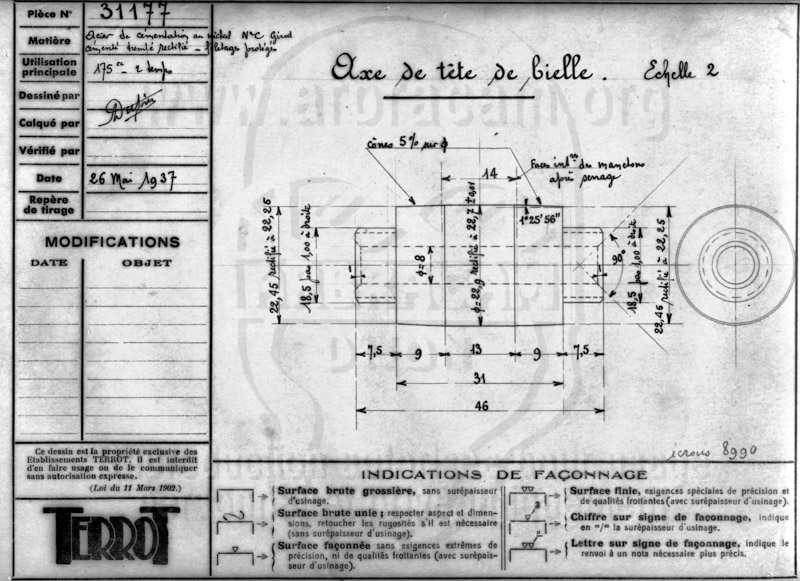 Pièce N° 31177
Matière Acier de cémentation au nickel N°C Girod
cémenté trempé rectifié _ filetage protégés
Utilisation
principale 175cc _ 2 temps
Dessiné par
Calqué par
Vérifié par
Date 26 Mai 1937
Repère
de tirage
MODIFICATIONS
DATE OBJET
Ce dessin est la propriété exclusive des
Etablissements TERROT, il est interdit
d'en faire usage ou de le communiquer
sans autorisation expresse.
(Loi du 11 Mars 1902.)
TERROT
Axe de tête de bielle. Echelle 2
cônes 5% sur ϕ
Faces intres des manetons
après serrage
14
1°25'56"
22,45 rectifié à 22,25
18,5 pas 1,00 à droite
1
ϕ=8
ϕ=22,9 rectifié à 22,7 ±0,01
1
90°
18,5 pas 1,00 à droite
22,45 rectifié à 22,25
7,5 9 13 9 7,5
31
46
écrous 8990
INDICATIONS DE FAÇONNAGE
Surface brute grossière, sans surépaisseur
d'usinage.
Surface brute unie ; respecter aspect et dimen-
sions, retoucher les rugosités s'il est nécessaire
(sans surépaisseur d'usinage).
Surface façonnée sans exigences extrêmes de
précision, ni de qualités frottantes (avec surépais-
seur d'usinage).
Surface finie, exigences spéciales de précision et
de qualités frottantes (avec surépaisseur d'usinage).
Chiffre sur signe de façonnage, indique
en "/" la surépaisseur d'usinage.
Lettre sur signe de façonnage, indique le
renvoi à un nota nécessaire plus précis.